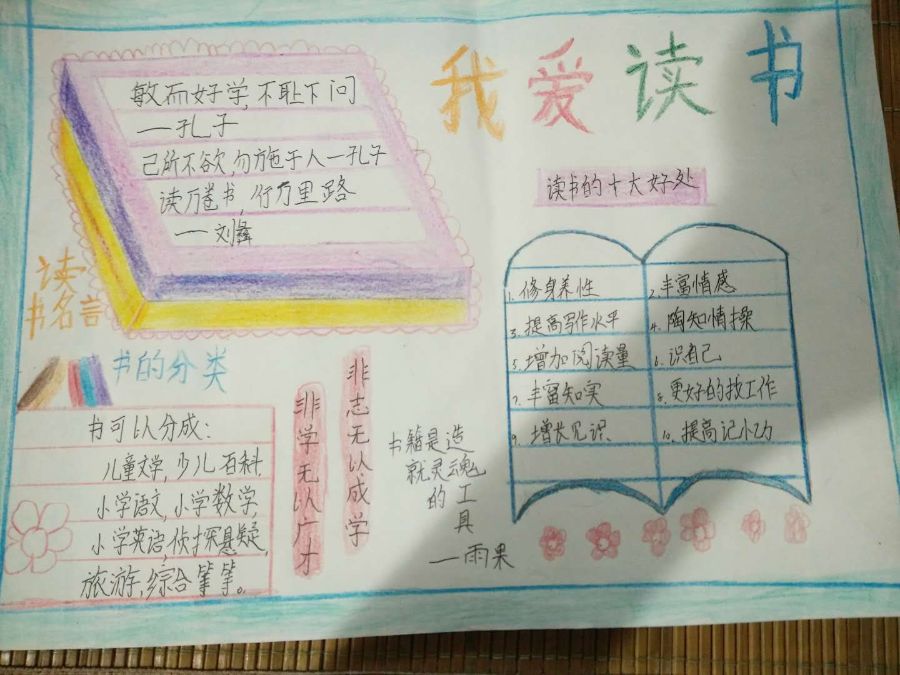 我爱读书
敏而好学,不耻下问
—孔子
己所不欲,勿施于人—孔子
读万卷书,行万里路
—刘彝
读
书名言
读书的十大好处
1.修身养性
2.丰富情感
3.提高写作水平
4.陶知情操
5.增加阅读量
6.识自己
7.丰富知实
8.更好的找工作
9.增长见识
10.提高记小力
书的分类
书可以分成:
儿童文学,少儿百科
小学语文,小学数学,
小学英语,侦探悬疑,
旅游,综合等等。
非学无以广才
非志无以成学
书籍是造
就灵魂
的工
具
—雨果